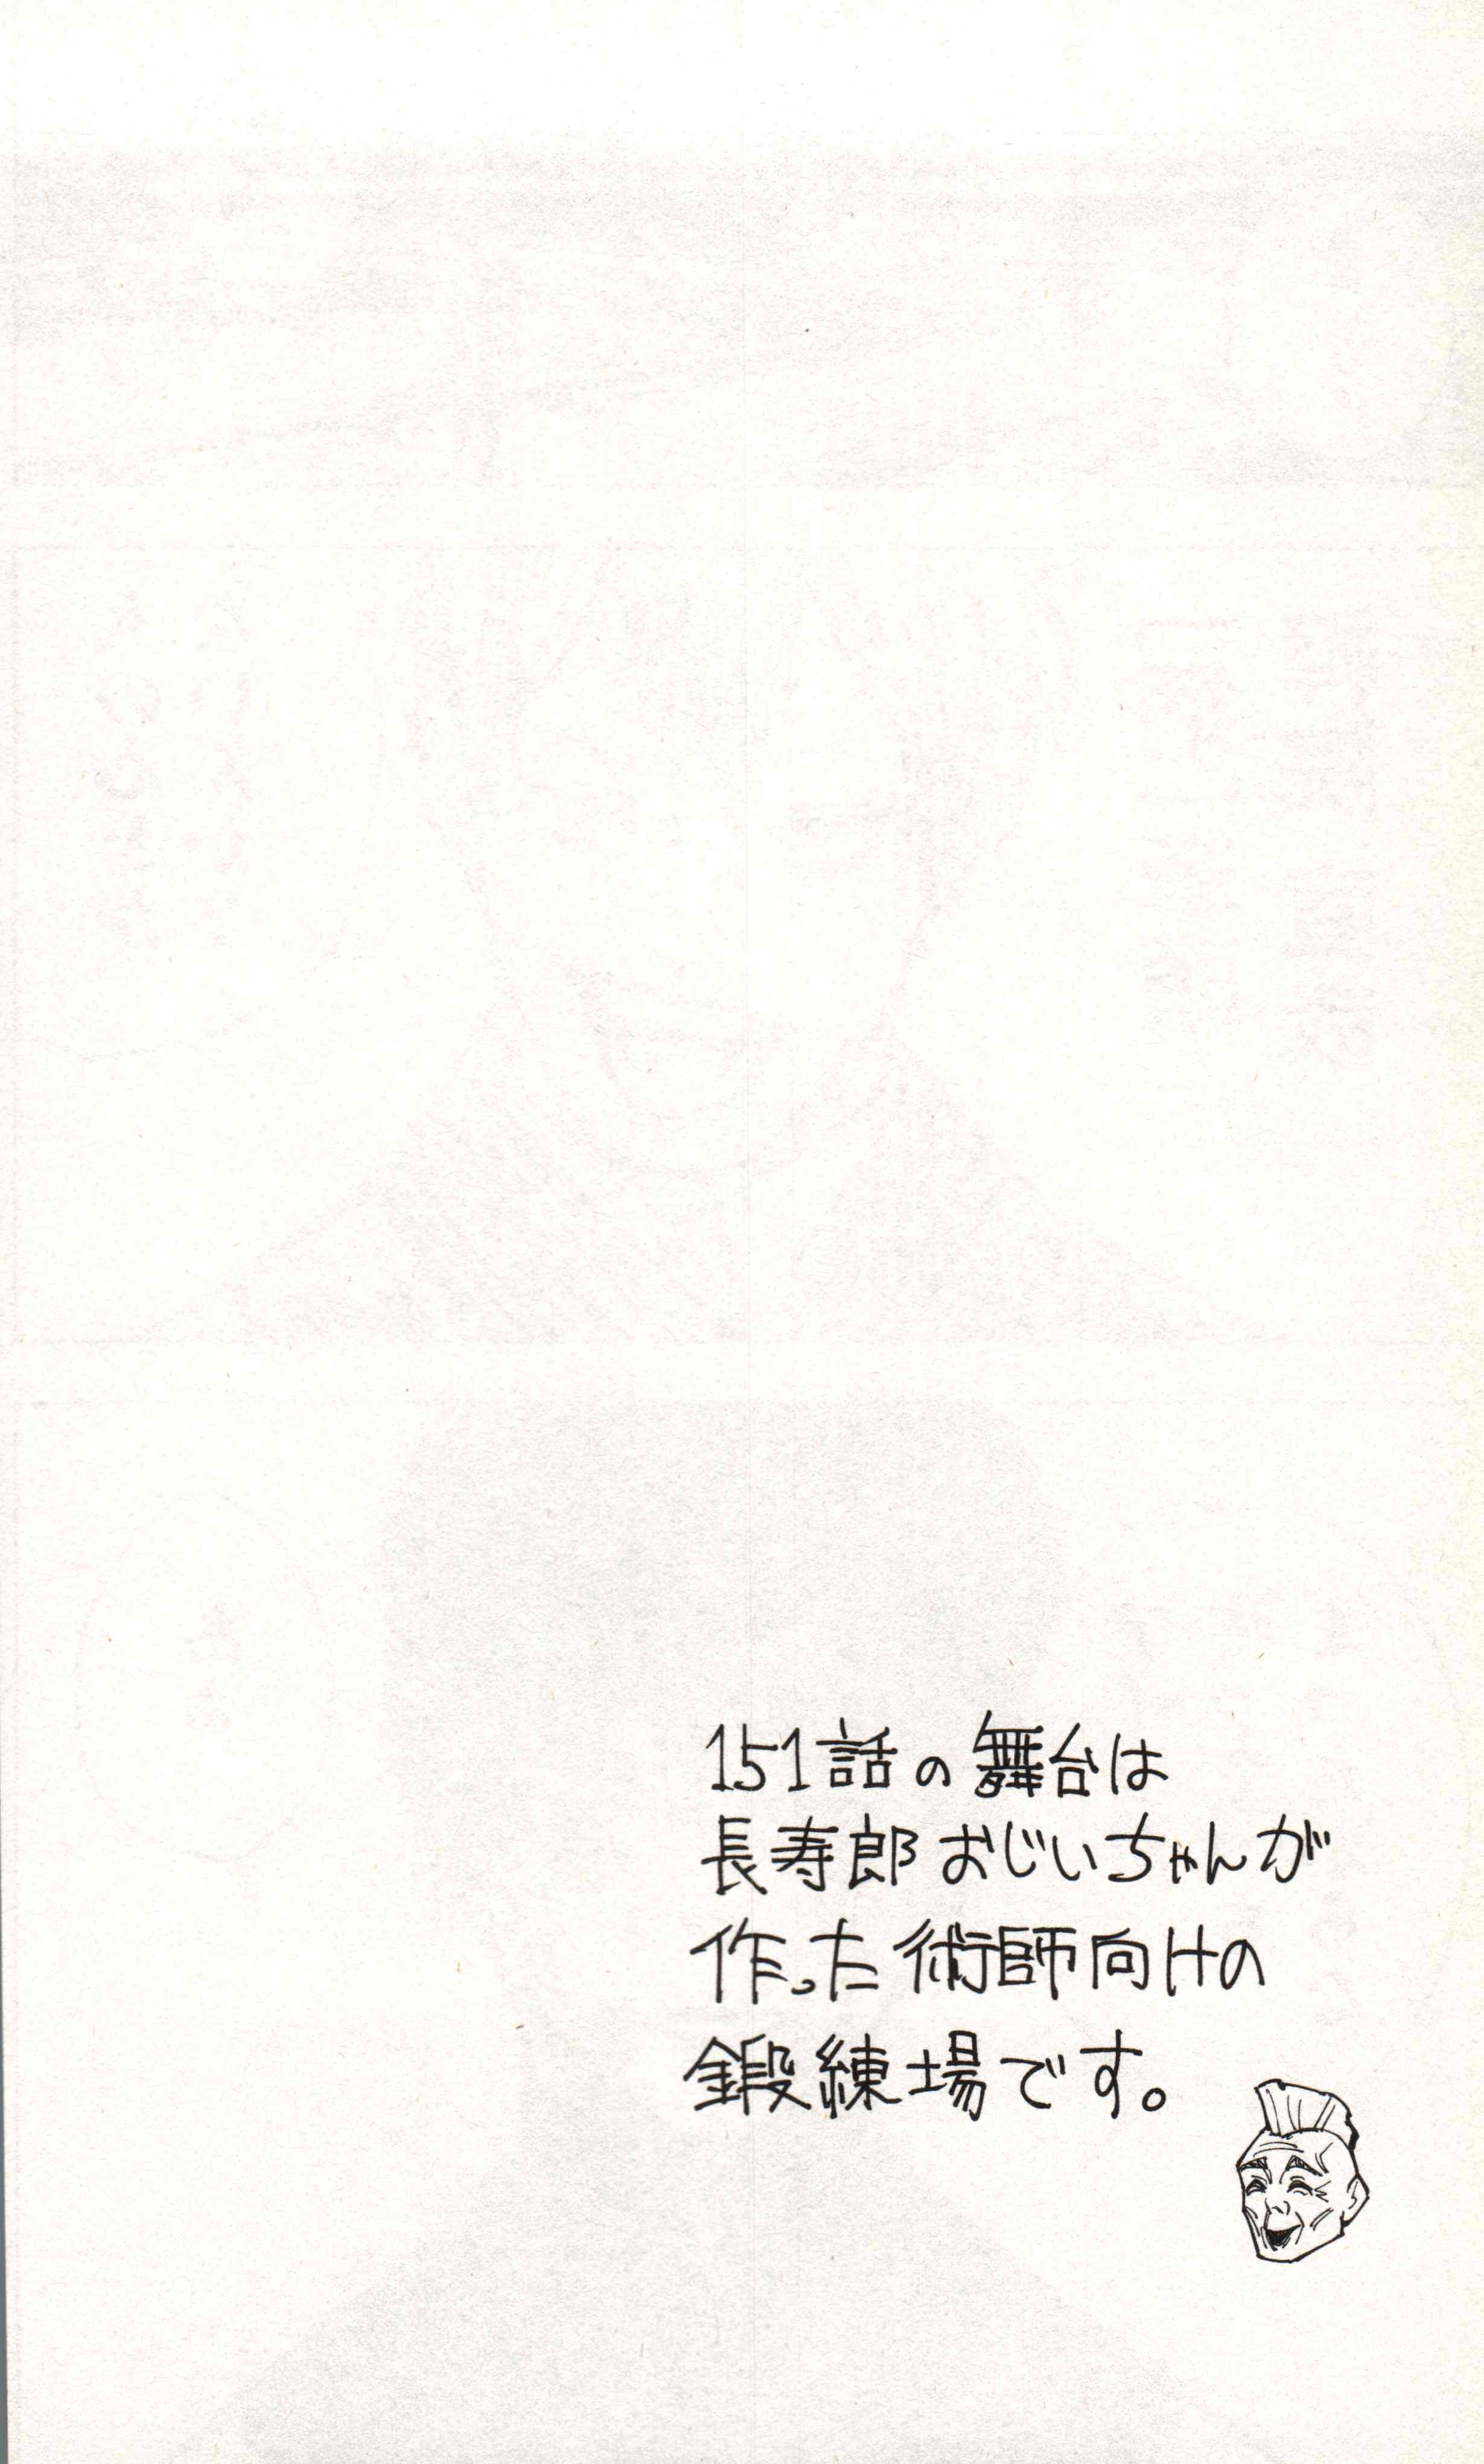 151話の舞台は
長寿郎おじいちゃんが
作った術師向けの
鍛練場です。